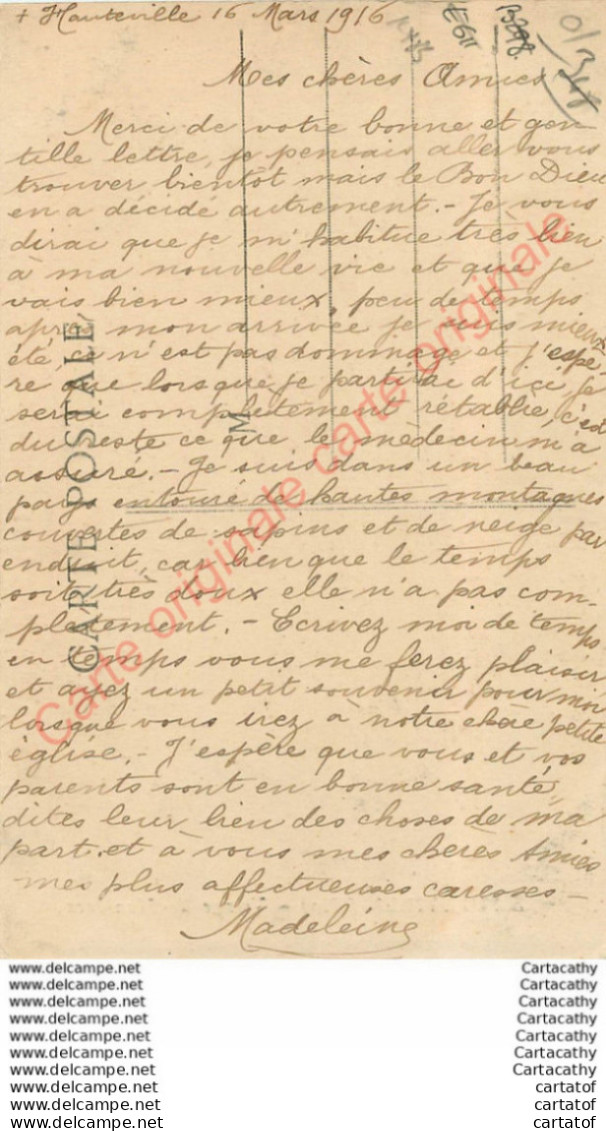 + Hauteville 16 Mars 1916
Mes chères Amies
Merci de votre bonne et gen
tille lettre, je pensais aller vous
trouver bientôt mais le Bon Dieu
en a décidé autrement. - Je vous
dirai que je m'habitue très bien
à ma nouvelle vie et que je
vais bien mieux, peu de temps
après mon arrivée je suis mieux
été, ce n'est pas dommage et j'espè
re que lorsque je partirai d'ici je
serai complètement rétablie, c'est
du reste ce que le médecin m'a
assuré. - Je suis dans un beau
pays entouré de hautes montagnes
couvertes de sapins et de neige par
endroit, car bien que le temps
soit très doux elle n'a pas com-
plètement. - Ecrivez moi de temps
en temps vous me ferez plaisir
et ayez un petit souvenir pour moi
lorsque vous irez à notre chère petite
église. - J'espère que vous et vos
parents sont en bonne santé,
dites leur bien des choses de ma
part. et à vous mes chères Amies
mes plus affectueuses caresses -
Madeleine
CARTE POSTALE
M
Carte originale carte originale
www.delcampe.net Cartacathy
www.delcampe.net Cartacathy
www.delcampe.net Cartacathy
www.delcampe.net Cartacathy
www.delcampe.net Cartacathy
www.delcampe.net Cartacathy
www.delcampe.net Cartacathy
www.delcampe.net cartatof
www.delcampe.net cartatof
www.delcampe.net cartatof